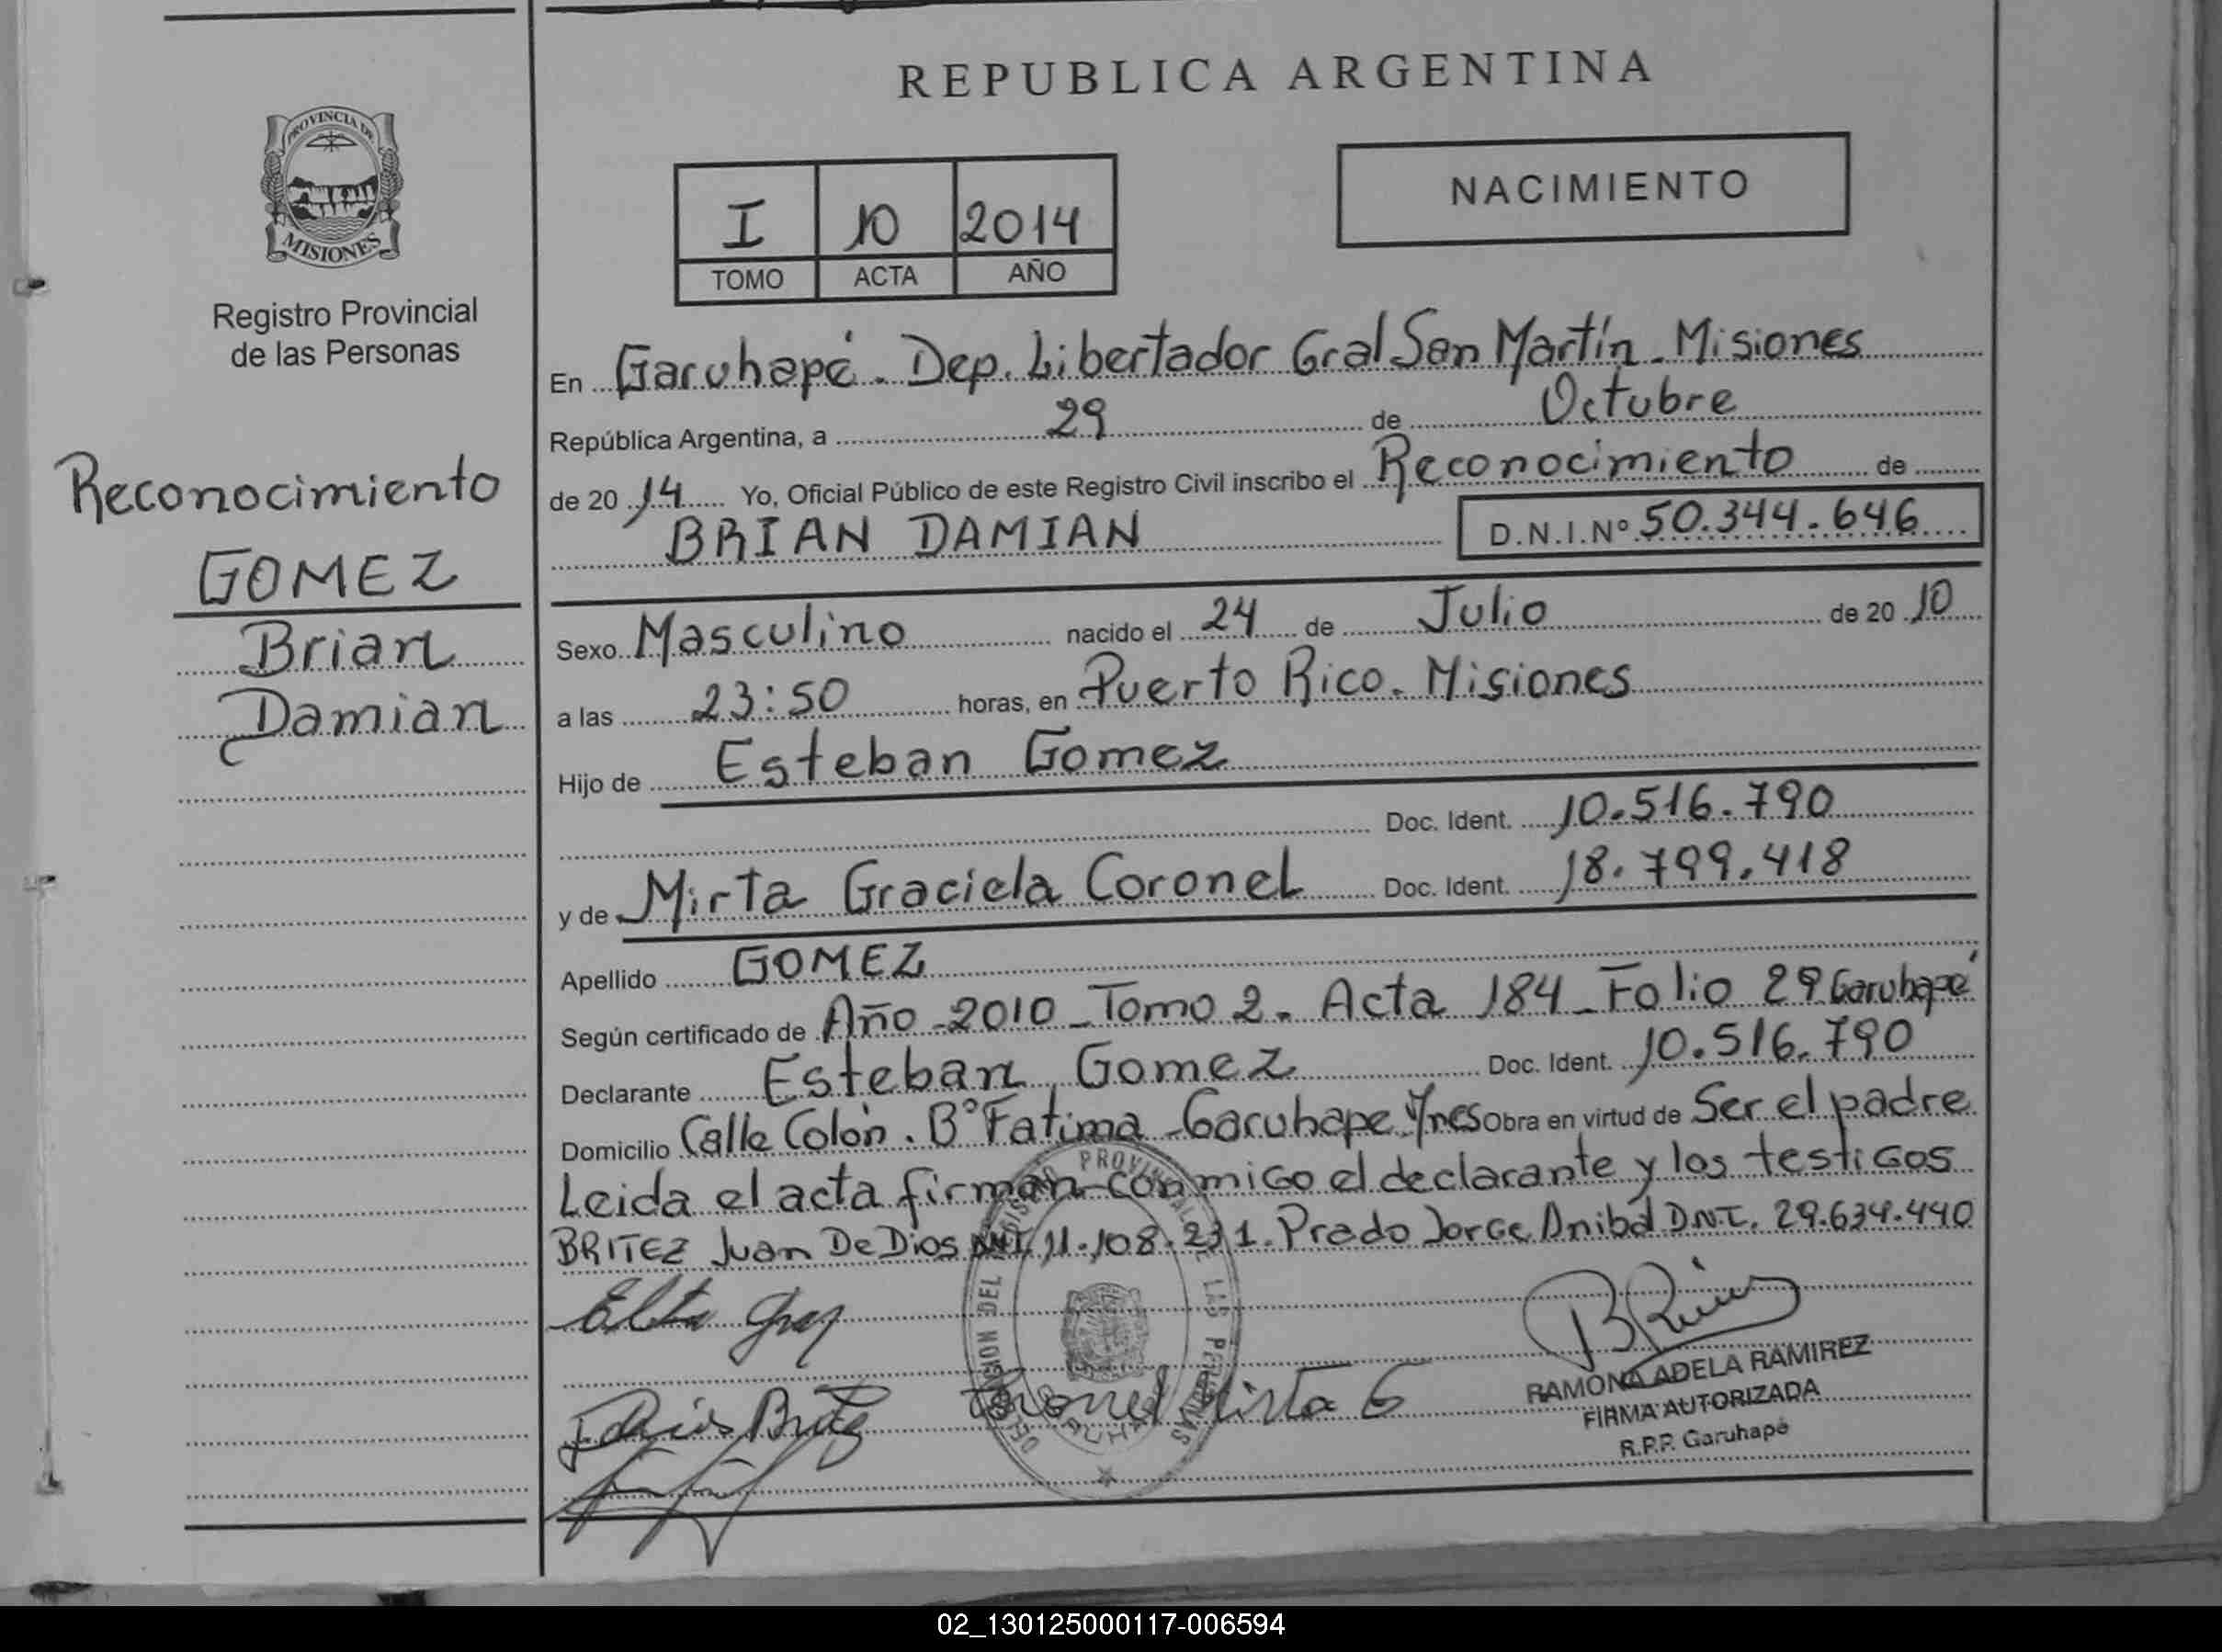 REPUBLICA ARGENTINA
PROVINCIA DE
MISIONES
Registro Provincial
de las Personas
Reconocimiento
GOMEZ
Brian
Damian
NACIMIENTO
I 10 2014
TOMO ACTA AÑO
En Garuhapé. Dep. Libertador Gral San Martín. Misiones
República Argentina, a 29 de Octubre
de 20 14 Yo, Oficial Público de este Registro Civil inscribo el Reconocimiento de
BRIAN DAMIAN D.N.I.Nº 50.344.646
Sexo Masculino nacido el 24 de Julio de 20 10
a las 23:50 horas, en Puerto Rico. Misiones
Hijo de Esteban Gomez
Doc. Ident. 10.516.790
y de Mirta Graciela Coronel Doc. Ident. 18.799.418
Apellido GOMEZ
Según certificado de Año -2010 - Tomo 2. Acta 184 - Folio 29 Garuhapé
Declarante Esteban Gomez Doc. Ident. 10.516.790
Domicilio Calle Colón. Bº Fatima - Garuhape Mnes Obra en virtud de Ser el padre
Leida el acta firman conmigo el declarante y los testigos
BRITEZ Juan De Dios DNI 11.108.231. Prado Jorge Anibal D.N.I. 29.634.440
Coronel Mirta G
RAMONA ADELA RAMIREZ
FIRMA AUTORIZADA
R.P.P. Garuhapé
02_130125000117-006594